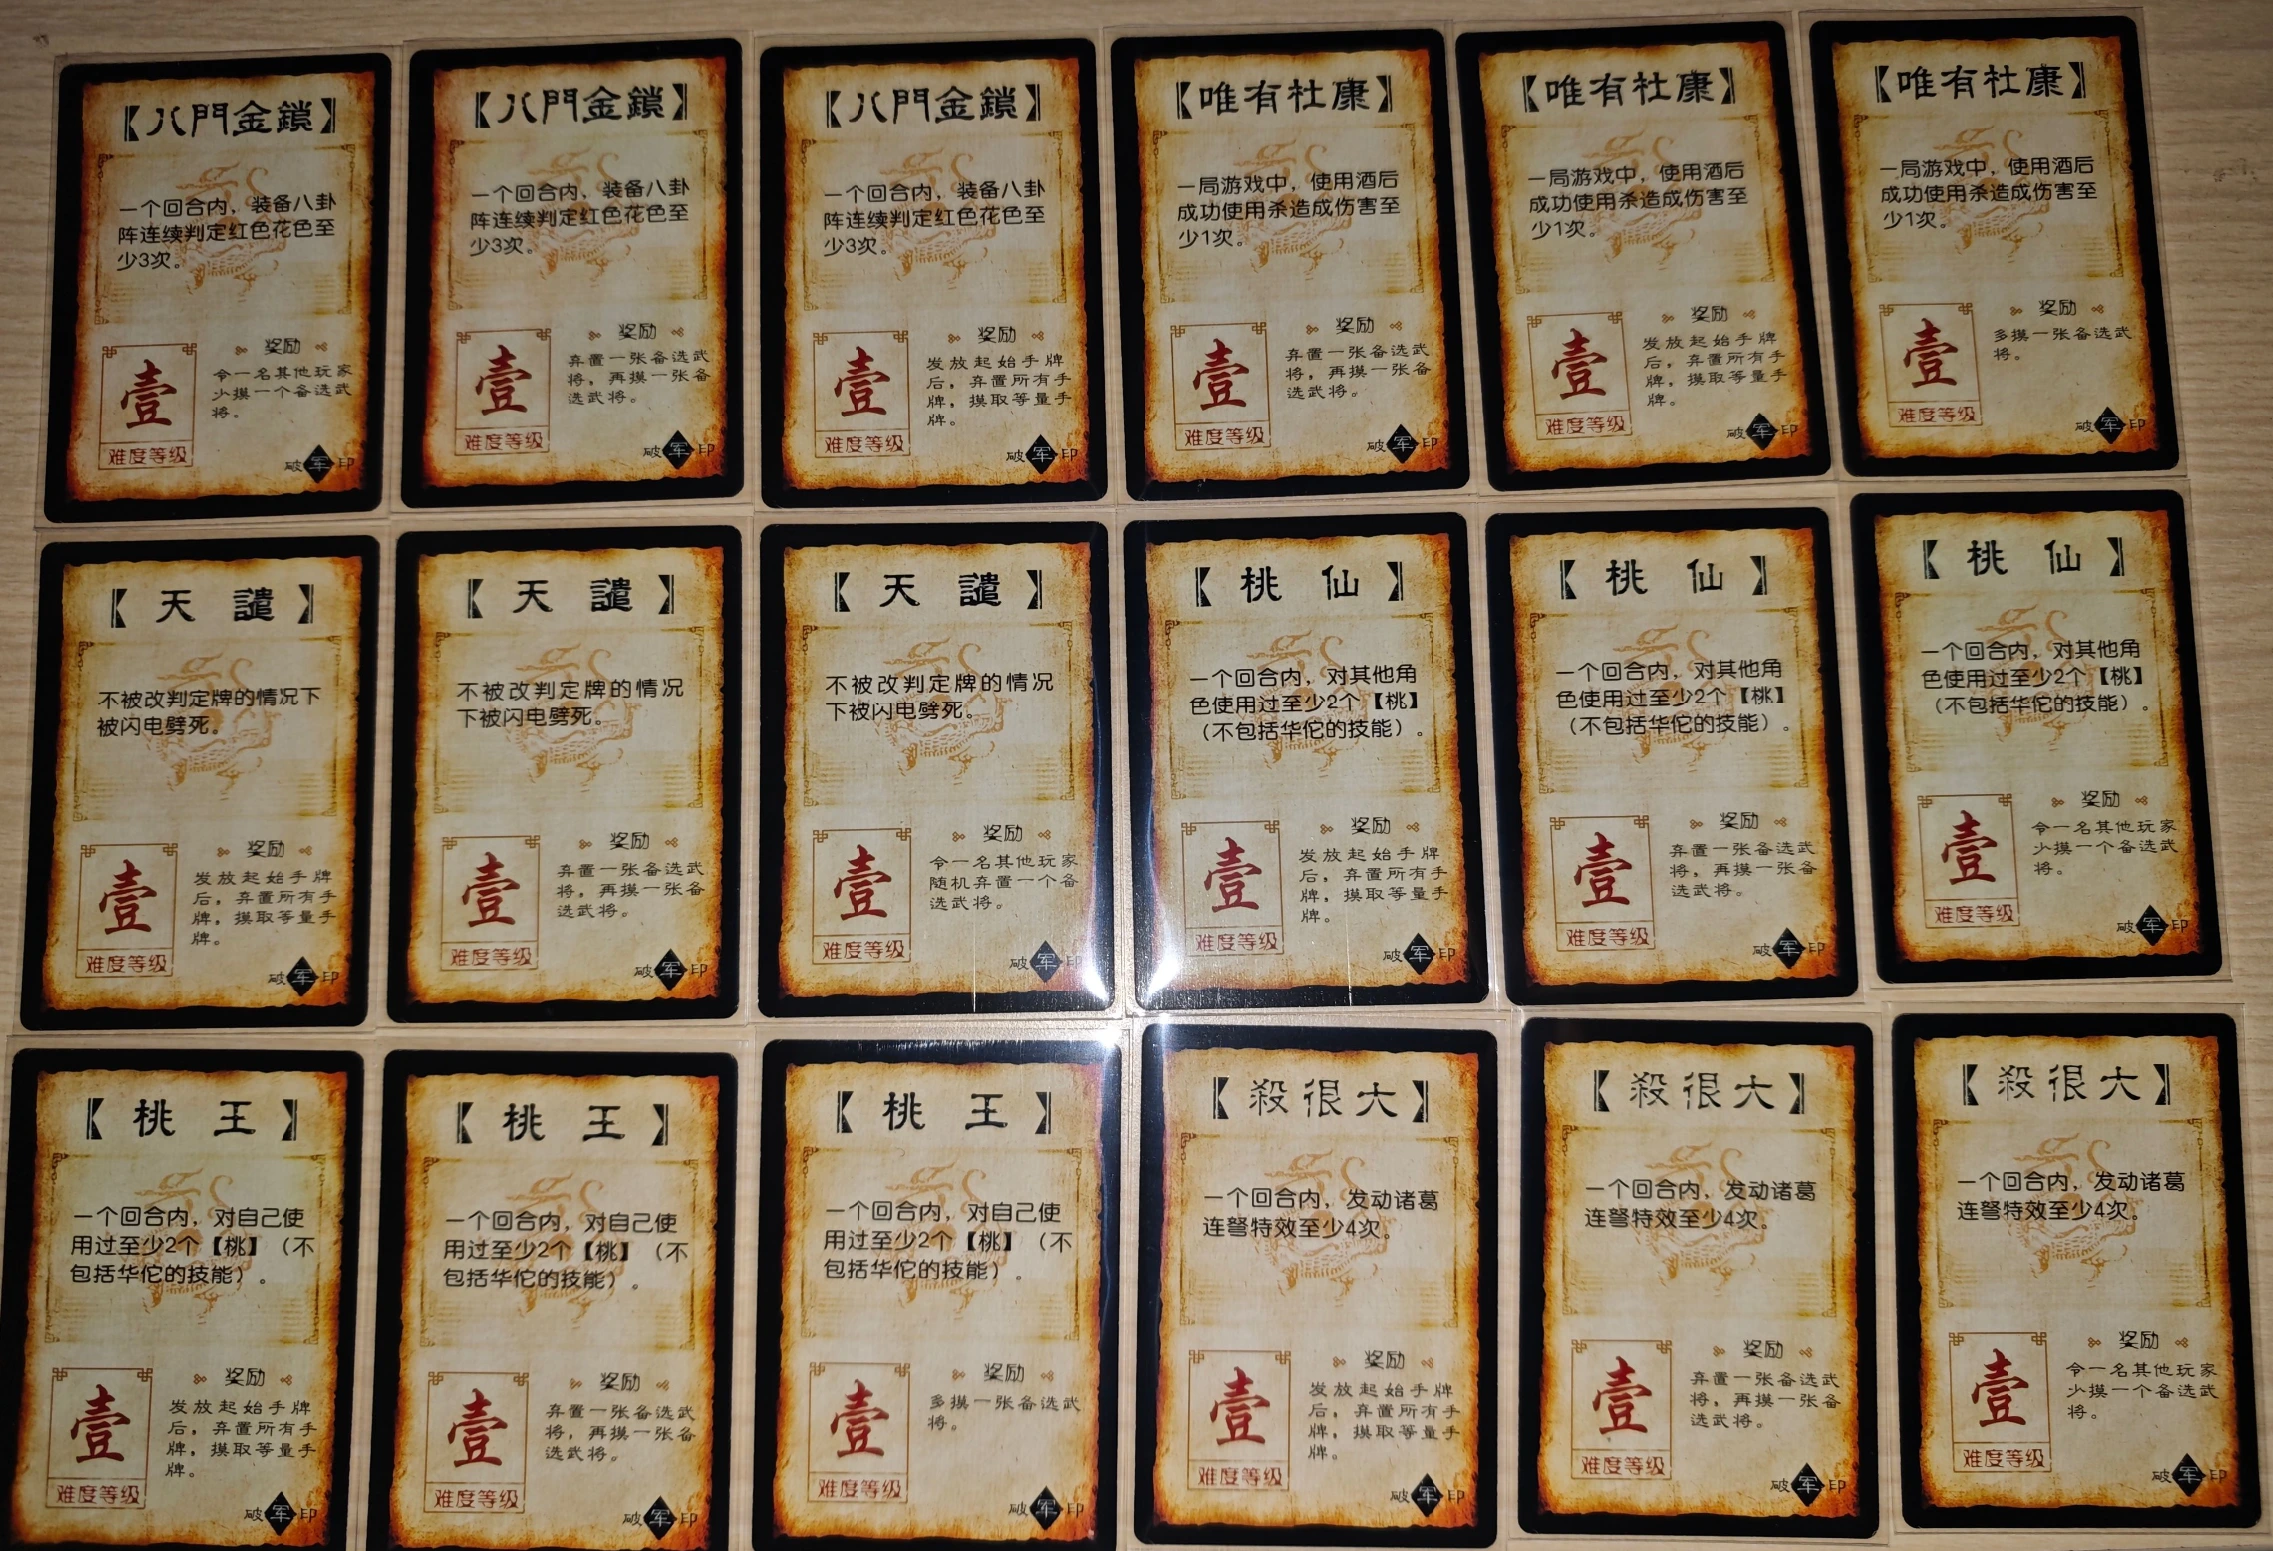 【八門金鎖】
一个回合内，装备八卦
阵连续判定红色花色至
少3次。
奖励
令一名其他玩家
少摸一个备选武
将。
壹
难度等级
破军印
【八門金鎖】
一个回合内，装备八卦
阵连续判定红色花色至
少3次。
奖励
弃置一张备选武
将，再摸一张备
选武将。
壹
难度等级
破军印
【八門金鎖】
一个回合内，装备八卦
阵连续判定红色花色至
少3次。
奖励
发放起始手牌
后，弃置所有手
牌，摸取等量手
牌。
壹
难度等级
破军印
【唯有杜康】
一局游戏中，使用酒后
成功使用杀造成伤害至
少1次。
奖励
弃置一张备选武
将，再摸一张备
选武将。
壹
难度等级
破军印
【唯有杜康】
一局游戏中，使用酒后
成功使用杀造成伤害至
少1次。
奖励
发放起始手牌
后，弃置所有手
牌，摸取等量手
牌。
壹
难度等级
破军印
【唯有杜康】
一局游戏中，使用酒后
成功使用杀造成伤害至
少1次。
奖励
多摸一张备选武
将。
壹
难度等级
破军印
【天譴】
不被改判定牌的情况下
被闪电劈死。
奖励
发放起始手牌
后，弃置所有手
牌，摸取等量手
牌。
壹
难度等级
破军印
【天譴】
不被改判定牌的情况
下被闪电劈死。
奖励
弃置一张备选武
将，再摸一张备
选武将。
壹
难度等级
破军印
【天譴】
不被改判定牌的情况
下被闪电劈死。
奖励
令一名其他玩家
随机弃置一个备
选武将。
壹
难度等级
破军印
【桃仙】
一个回合内，对其他角
色使用过至少2个【桃】
（不包括华佗的技能）。
奖励
发放起始手牌
后，弃置所有手
牌，摸取等量手
牌。
壹
难度等级
破军印
【桃仙】
一个回合内，对其他角
色使用过至少2个【桃】
（不包括华佗的技能）。
奖励
弃置一张备选武
将，再摸一张备
选武将。
壹
难度等级
破军印
【桃仙】
一个回合内，对其他角
色使用过至少2个【桃】
（不包括华佗的技能）。
奖励
令一名其他玩家
少摸一个备选武
将。
壹
难度等级
破军印
【桃王】
一个回合内，对自己使
用过至少2个【桃】（不
包括华佗的技能）。
奖励
发放起始手牌
后，弃置所有手
牌，摸取等量手
牌。
壹
难度等级
破军印
【桃王】
一个回合内，对自己使
用过至少2个【桃】（不
包括华佗的技能）。
奖励
弃置一张备选武
将，再摸一张备
选武将。
壹
难度等级
破军印
【桃王】
一个回合内，对自己使
用过至少2个【桃】（不
包括华佗的技能）。
奖励
多摸一张备选武
将。
壹
难度等级
破军印
【殺很大】
一个回合内，发动诸葛
连弩特效至少4次。
奖励
发放起始手牌
后，弃置所有手
牌，摸取等量手
牌。
壹
难度等级
破军印
【殺很大】
一个回合内，发动诸葛
连弩特效至少4次。
奖励
弃置一张备选武
将，再摸一张备
选武将。
壹
难度等级
破军印
【殺很大】
一个回合内，发动诸葛
连弩特效至少4次。
奖励
令一名其他玩家
少摸一个备选武
将。
壹
难度等级
破军印